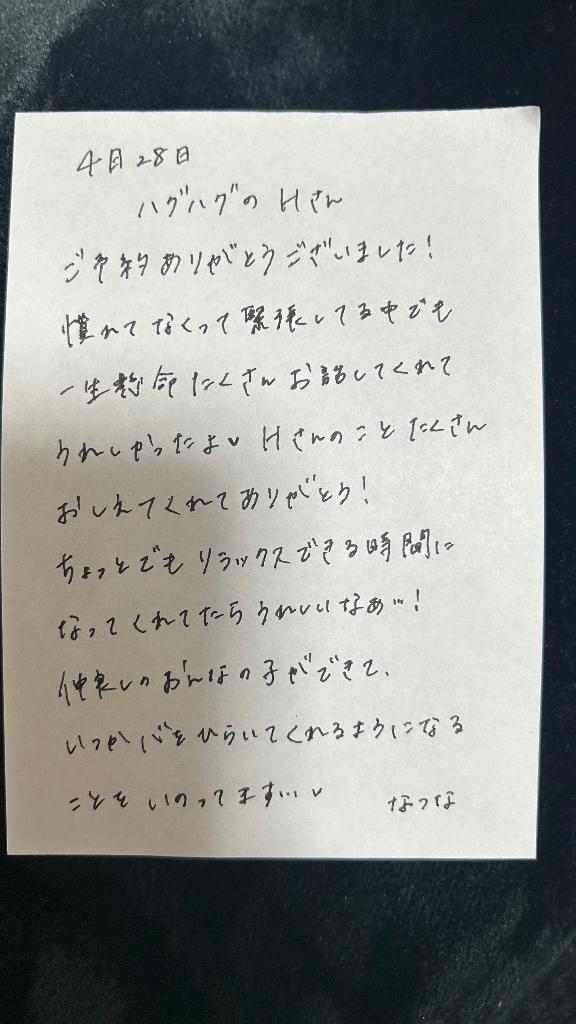 4月28日
ハグハグの Hさん
ご予約ありがとうございました!
慣れてなくって緊張してる中でも
一生懸命たくさんお話してくれて
うれしかったよ♡ Hさんのことたくさん
おしえてくれてありがとう!
ちょっとでもリラックスできる時間に
なってくれてたらうれしいなぁ…!
仲良しのおんなの子ができて、
いつか心をひらいてくれるようになる
ことをいのってます…♡ なつな